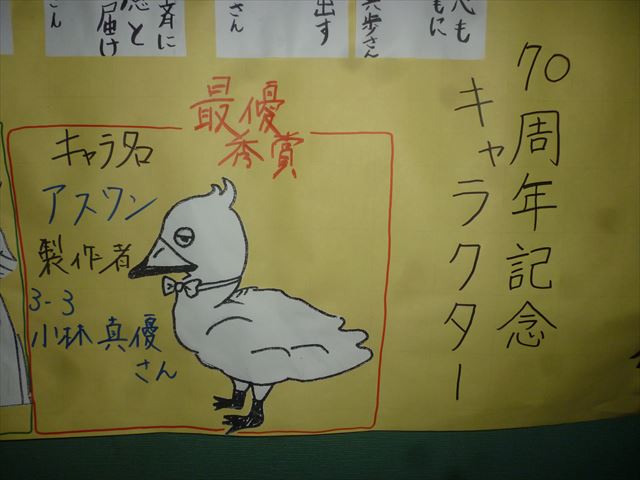 70周年記念
キャラクター
最優
秀賞
キャラ名
アスワン
製作者
3-3
小林真優
さん
心も
もに
歩さん
出す
さん
斉に
と
届け
さん